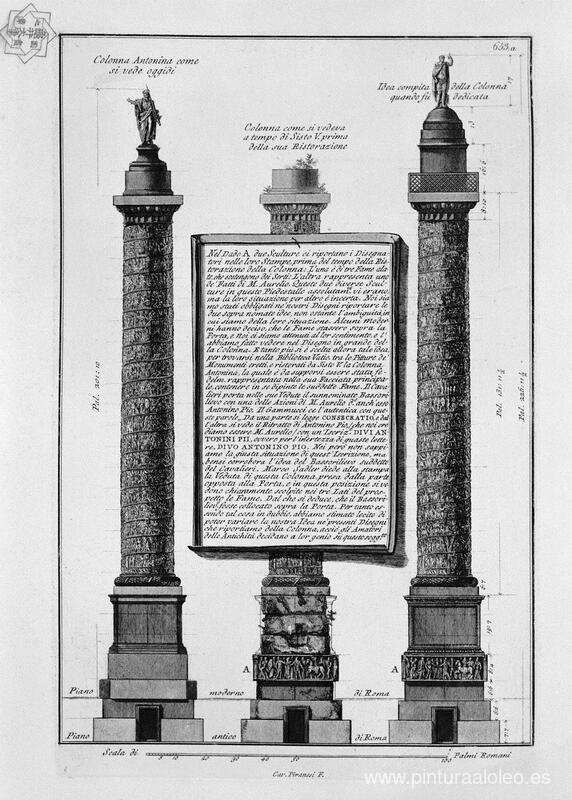 653.a
Colonna Antonina come
si vede oggidì
Idea compita della Colonna
quando fù dedicata
Colonna come si vedeva
a tempo di Sisto V. prima
della sua Ristorazione
Nel Dado A due Sculture ci riportano i Disegna-
tori nelle loro Stampe, prima del tempo della Ris-
torazione della Colonna: L'una è di tre Fame ala-
te, che sostengono dei Serti: L'altra rappresenta uno
de' Fatti di M. Aurelio. Queste due diverse Scul-
ture in questo Piedestallo assolutam.te vi erano,
ma la loro situazione per altro è incerta. Noi sia-
mo stati obbligati ne' nostri Disegni riportare le
due sopra nomate idee, non ostante l'ambiguità in
cui siamo della loro situazione. Alcuni moder-
ni hanno deciso, che le Fame stassero sopra la
Porta, e Noi ci siamo attenuti al lor sentimento, e l'
abbiamo fatto vedere nel Disegno in grande del-
la Colonna. E tanto più si è scelta allora tale idea,
per trovarsi nella Biblioteca Vatic. tra le Pitture de'
Monumenti eretti, e ristorati da Sisto V. la Colonna
Antonina, la quale è da supporsi essere stata fe-
delm. rappresentata nella sua Facciata principa-
le, contenere in se dipinte le suddette Fame. Il Cava-
lieri porta nelle sue Vedute il sunnominato Bassori-
lievo con una delle Azioni di M. Aurelio d'anch'esso
Antonino Pio. Il Gammucci ce l'autentica con que-
ste parole. Da una parte si legge CONSECRATIO, e dal
l'altra si vede il Ritratto di Antonino Pio, (che noi cre-
diamo essere M. Aurelio) con un' Iscriz.e DIVI AN-
TONINI PII, ovvero per l'intertezza di queste lette-
re, DIVO ANTONINO PIO. Noi però non sappi-
amo la giusta situazione di quest' Iscrizione, ma
bensì corrobora l'idea del Bassorilievo suddetto
del Cavalieri. Marco Sadler diede alla stampa
la Veduta di questa Colonna, presa dalla parte
opposta alla Porta, e in questa posizione si ve-
dono chiaramente scolpite nei tre Lati del pros-
petto le Fame. Dal che si deduce, che il Bassori-
liev.o fosse collocato sopra la Porta. Per tanto es-
sendo tal cosa in dubbio, abbiamo stimato lecito di
poter variare la nostra Idea ne' presenti Disegni
che riportiamo della Colonna, acciò gli Amatori
delle Antichità decidano a lor genio su questo sogg.tto
Pal. 201:10
Pal. 131:11½
Pal. 226:11½
A
A
Piano moderno di Roma
Piano antico di Roma
Scala di 5 10 20 30 40 50 100 Palmi Romani
Cav. Piranesi F.
www.pinturaaloleo.es